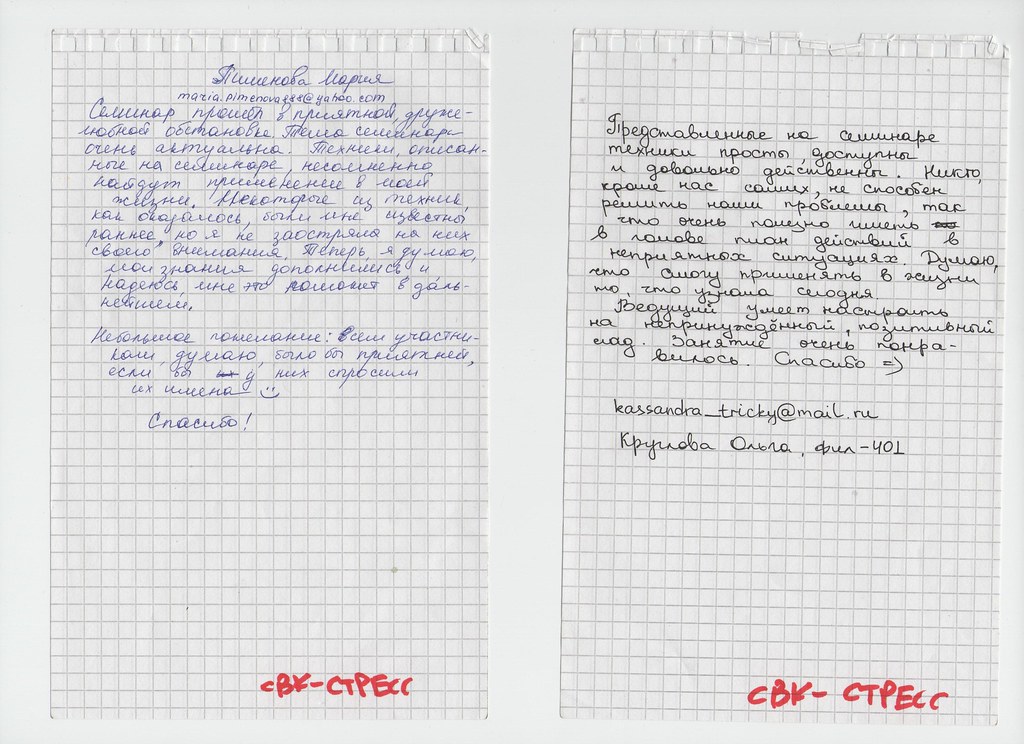 Пименова Мария
maria.pimenova888@yahoo.com
Семинар прошёл в приятной, друже-
любной обстановке. Тема семинара
очень актуальна. Техники, описан-
ные на семинаре, несомненно
найдут применение в моей
жизни. Некоторые из техник,
как оказалось, были мне известны
ранее, но я не заостряла на них
своего внимания. Теперь, я думаю,
мои знания дополнились и
надеюсь, мне это поможет в даль-
нейшем.
Небольшое пожелание: Всем участни-
кам, думаю, было бы приятней,
если бы у них спросили
их имена
Спасибо!
СВК-СТРЕСС
Представленные на семинаре
техники просты, доступны
и довольно действенны. Никто,
кроме нас самих, не способен
решить наши проблемы, так
что очень полезно иметь
в голове план действий в
неприятных ситуациях. Думаю,
что смогу применять в жизни
то, что узнала сегодня.
Ведущий умеет настроить
на непринуждённый, позитивный
лад. Занятие очень понра-
вилось. Спасибо =)
kassandra_tricky@mail.ru
Круглова Ольга, фил-401
СВК- СТРЕСС